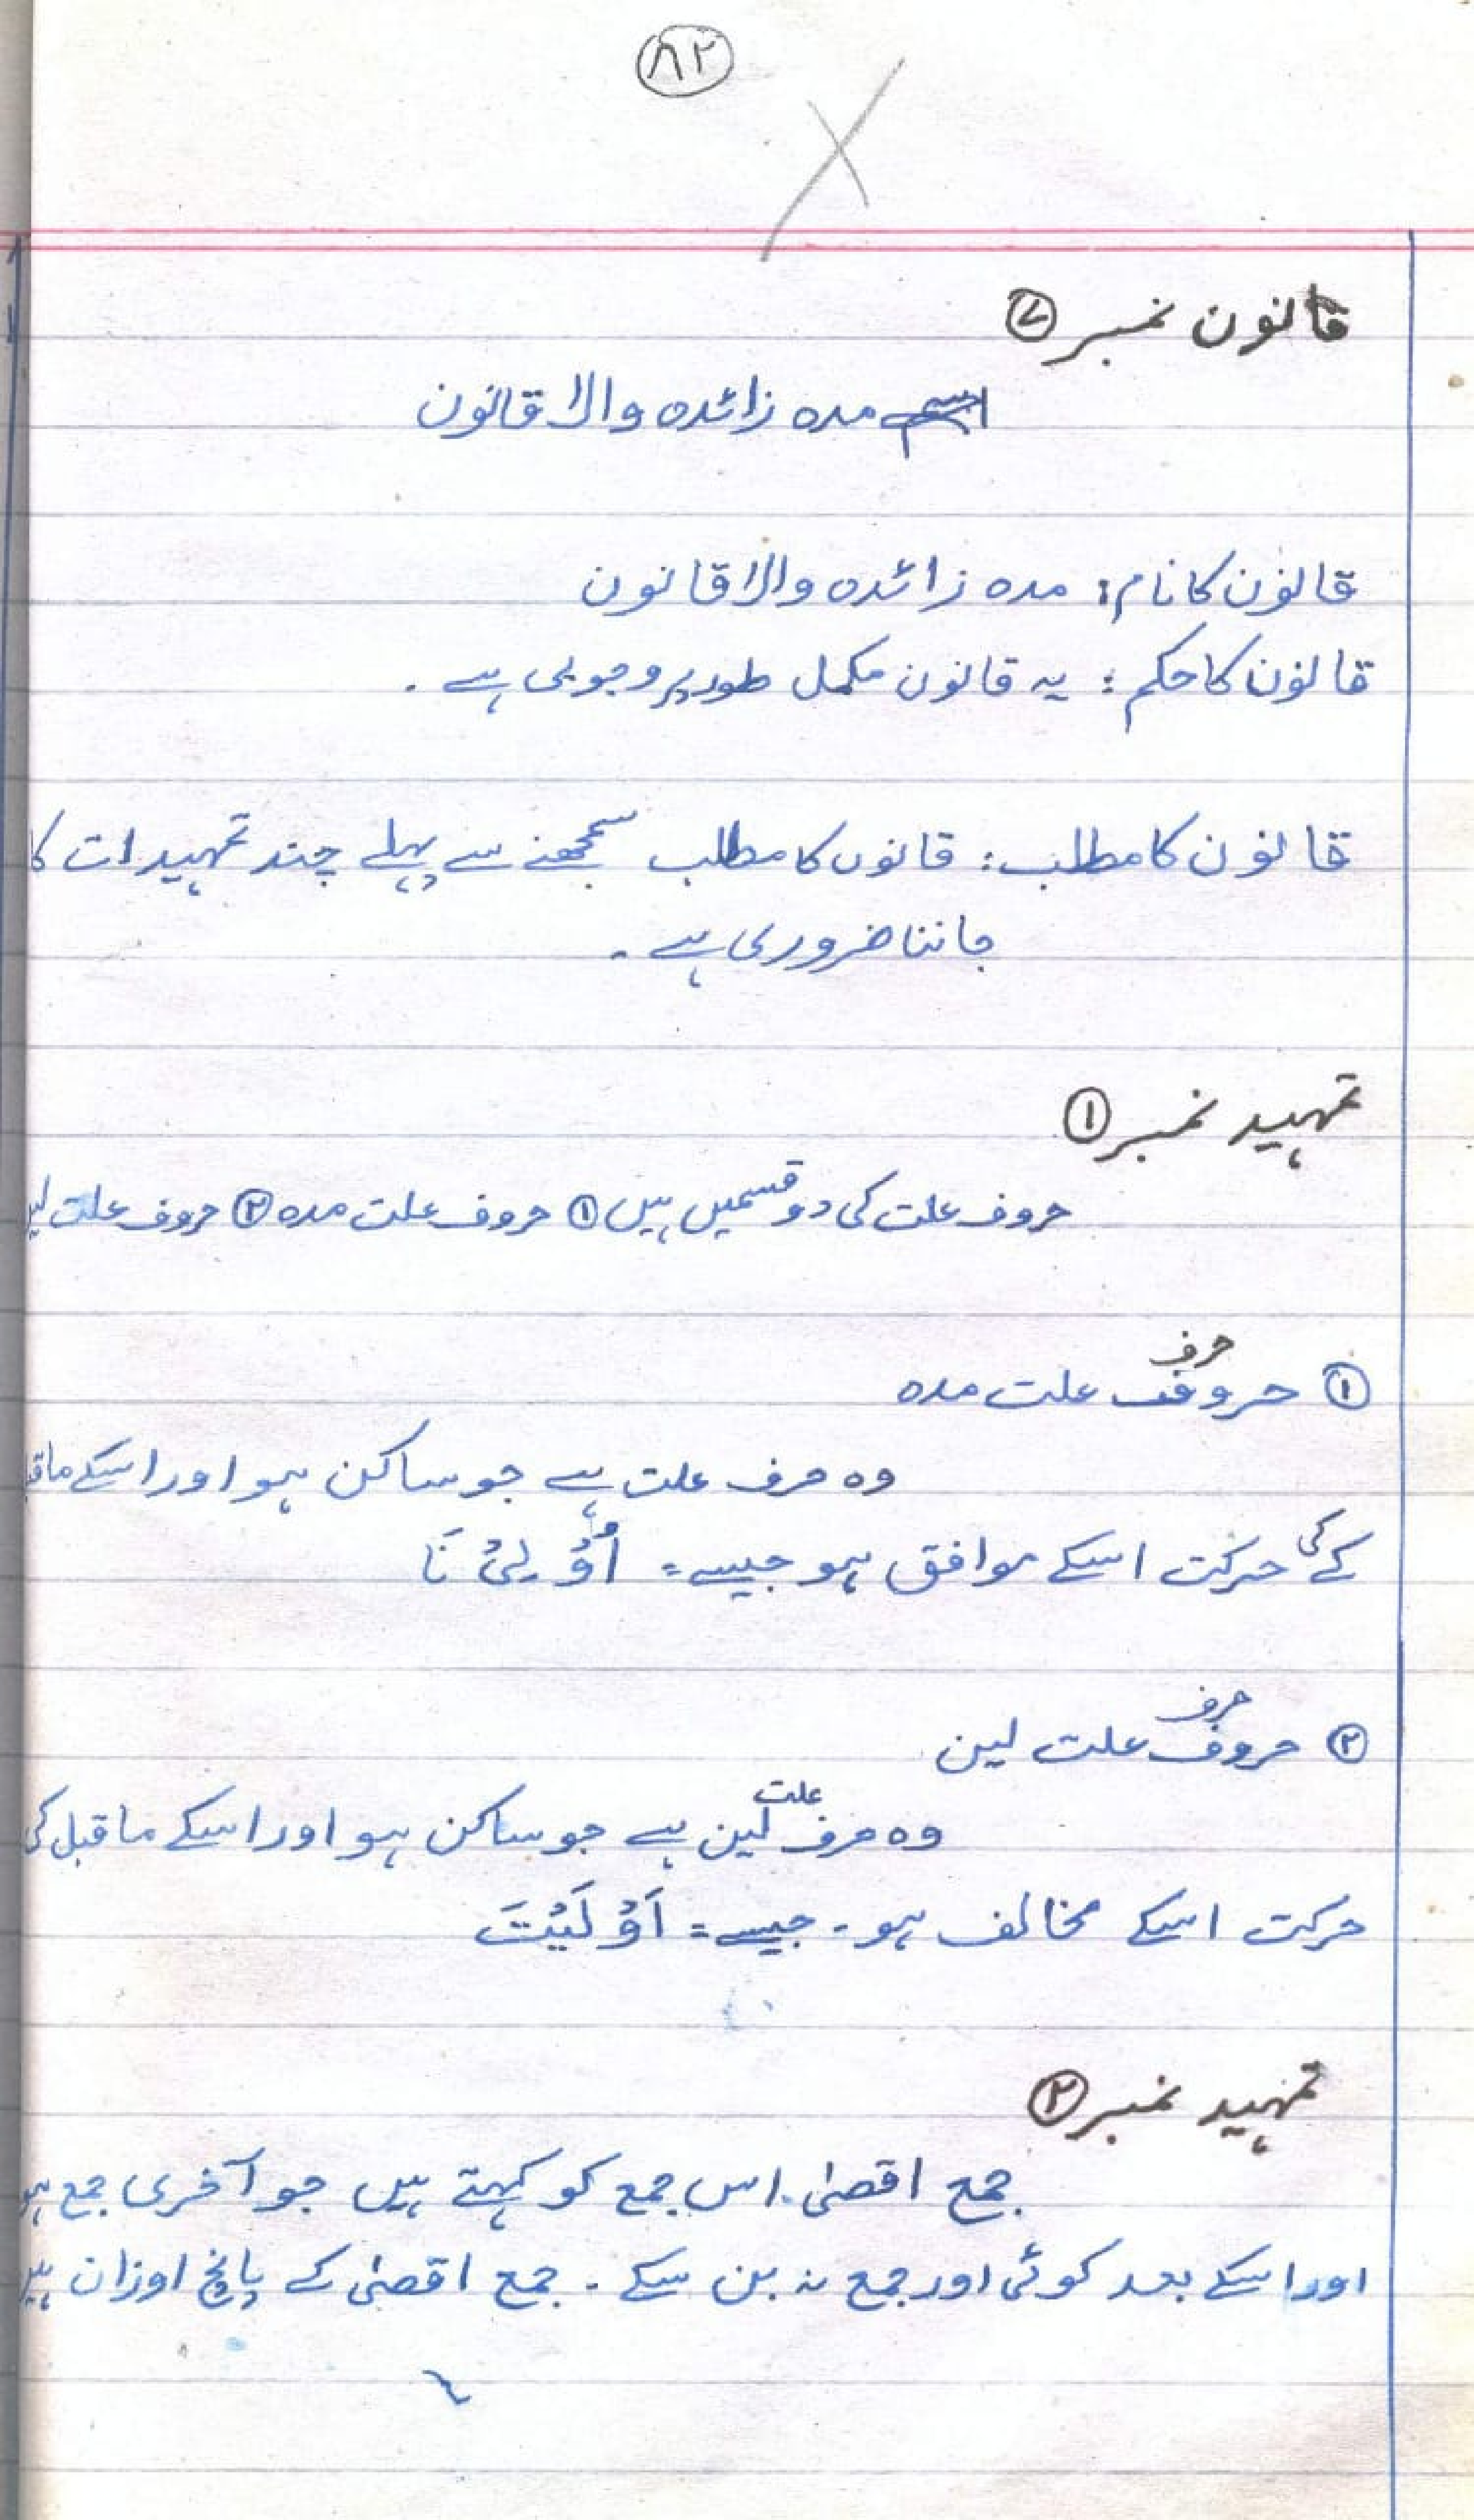 ۸۲
قانون نمبر ۷
مدہ زائدہ والا قانون
قانون کا نام: مدہ زائدہ والا قانون
قانون کا حکم: یہ قانون مکمل طور پر وجوبی ہے۔
قانون کا مطلب: قانوں کا مطلب سمجھنے سے پہلے چند تمہیدات کا
جاننا ضروری ہے۔
تمہید نمبر ①
حروف علت کی دو قسمیں ہیں ① حروف علت مدہ ② حروف علت
حرف
① حروف علت مدہ
وہ حرف علت ہے جو ساکن ہو اور اسکے
کے کی حرکت اسکے موافق ہو جیسے =
حرف
② حروف علت لین
علت
وہ حرف لین ہے جو ساکن ہو اور اسکے ماقبل کی
حرکت اسکے مخالف ہو۔ جیسے = اَوْ لَیْتَ
تمہید نمبر ②
جمع اقصیٰ اس جمع کو کہتے ہیں جو آخری جمع ہو
اور اسکے بعد کوئی اور جمع نہ بن سکے۔ جمع اقصیٰ کے پانچ اوزان ہیں